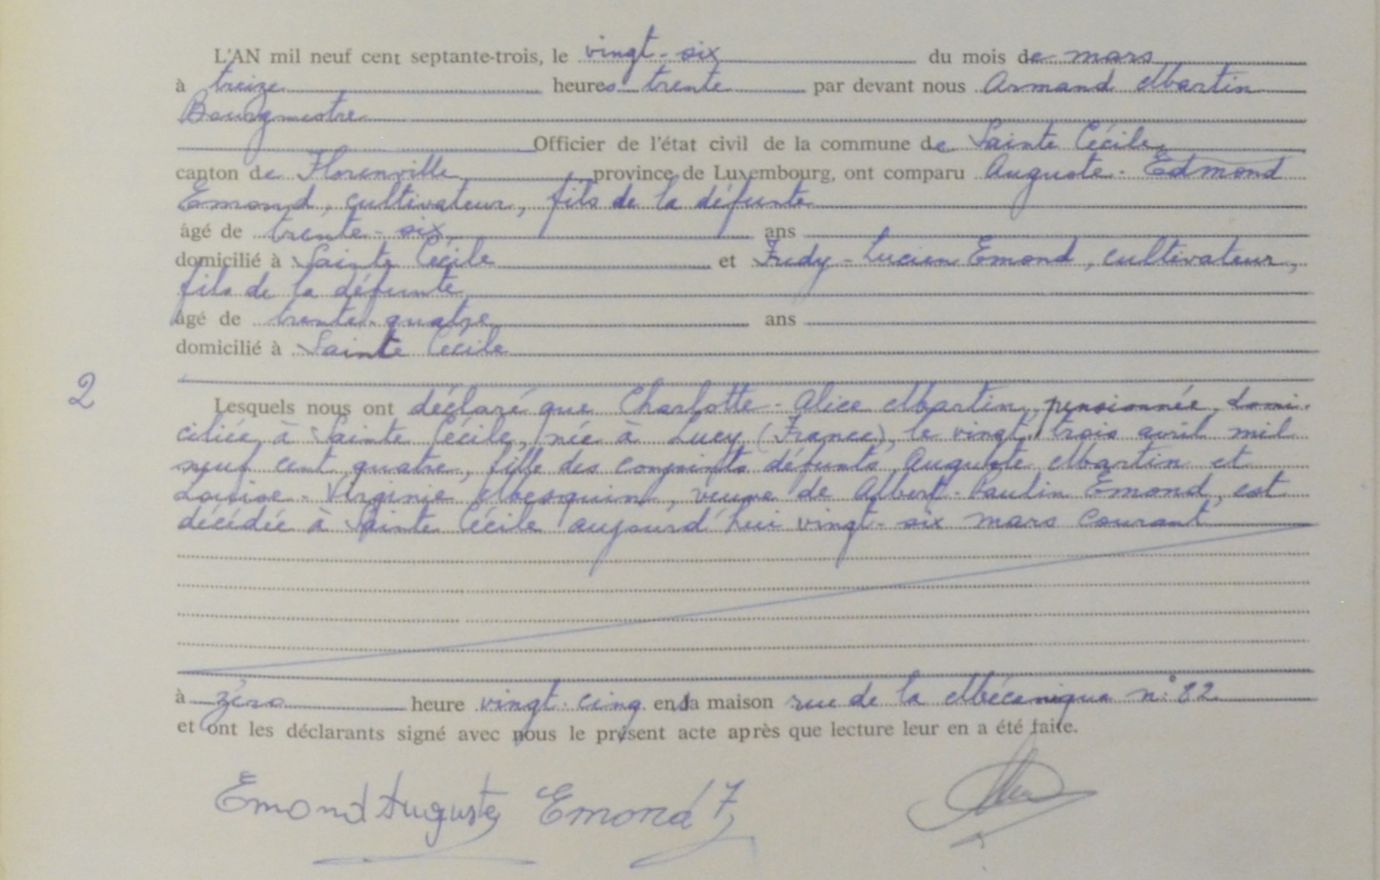 L'AN mil neuf cent septante-trois, le vingt-six du mois de mars
à treize heures trente par devant nous Armand Martin
Bourgmestre
Officier de l'état civil de la commune de Sainte Cécile
canton de Florenville province de Luxembourg, ont comparu Auguste-Edmond
Emond, cultivateur, fils de la défunte
âgé de trente-six ans
domicilié à Sainte Cécile et Fudy-Lucien Emond, cultivateur,
fils de la défunte
âgé de trente-quatre ans
domicilié à Sainte Cécile
2
Lesquels nous ont déclaré que Charlotte-Alice Martin, pensionnée, domi-
ciliée à Sainte Cécile, née à Lucy (France), le vingt trois avril mil
neuf cent quatre, fille des conjoints défunts Auguste Martin et
Louise-Virginie Mesquin, veuve de Albert-Paulin Emond, est
décédée à Sainte Cécile aujourd'hui vingt-six mars courant
à zéro heure vingt-cinq en la maison rue de la Mécanique n° 82
et ont les déclarants signé avec nous le présent acte après que lecture leur en a été faite.
Emond Auguste Emond F